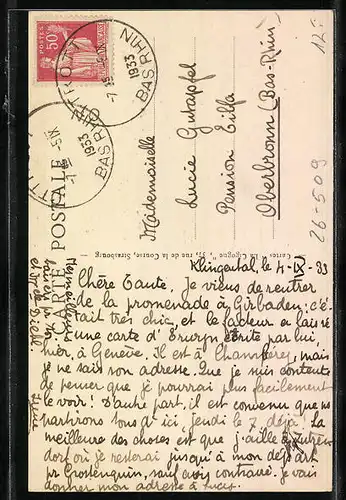 50
OTTROTT
BAS RHIN
-7
1933
OTTROTT
BAS RHIN
1933
CARTE POSTALE
Mademoiselle
Lucie Gutapfel
Pension Eilfa
Oberbronn (Bas-Rhin)
12.-
26-509
Cartes "La Cigogne", 37, rue de la Course, Strasbourg
Klingental, le 4-IX-33
Chère Tante, Je viens de rentrer
de la promenade à Girbaden: c'é-
tait très chic, et le facteur a laissé
une carte d'Erwyn écrite par lui,
hier, à Genève. Il est à Champéry, mais
je ne sais son adresse. Que je suis contente
de penser que je pourrai plus facilement
le voir! D'autre part, il est convenu que nous
partirons tous d'ici, jeudi le 7, déjà! La
meilleure des choses est que j'aille à
dorf où je resterai jusqu'à mon départ
pr Grostenquin, sauf avis contraire. Je vais
donner mon adresse à Lucy.
Merveilleux